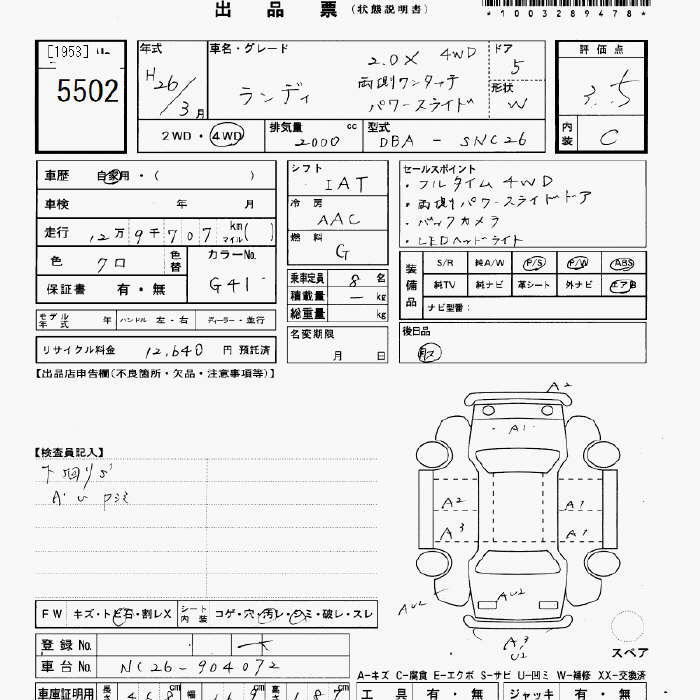 出品票 (状態説明書)
*1003289478*
[1953]
5502
年式 H26/3月
車名・グレード 2.0X 4WD
ランディ 両側ワンタッチ
パワースライド
ドア 5
形状 W
評価点 3.5
内装 C
2WD・4WD
排気量 2000 cc
型式 DBA-SNC26
車歴 自家用・( )
車検 年 月
走行 12万9千707 km マイル( )
色 クロ 色替
カラーNo. G41
保証書 有・無
シフト IAT
冷房 AAC
燃料 G
乗車定員 8名
積載量 - kg
総重量 kg
セールスポイント
・フルタイム4WD
・両側パワースライドドア
・バックカメラ
・LEDヘッドライト
装備品
S/R 純A/W P/S P/W ABS
純TV 純ナビ 革シート 外ナビ エアB
ナビ型番:
モデル年式 年 ハンドル 左・右 ディーラー・並行
リサイクル料金 12,640 円 預託済
名変期限 月 日
後日品
【出品店申告欄(不良箇所・欠品・注意事項等)】
【検査員記入】
下回りS
A2
A1
A2
A3
A1
A1
AU2
AU2
A3
U2
スペア
FW キズ・トビ石・割レX
シート内装 コゲ・穴・汚レ・シミ・破レ・スレ
登録No.
車台No. NC26-904072
A-キズ C-腐食 E-エクボ S-サビ U-凹ミ W-補修 XX-交換済
車庫証明用 長さ 468 cm 幅 169 cm 高さ 187 cm
工具 有・無 ジャッキ 有・無